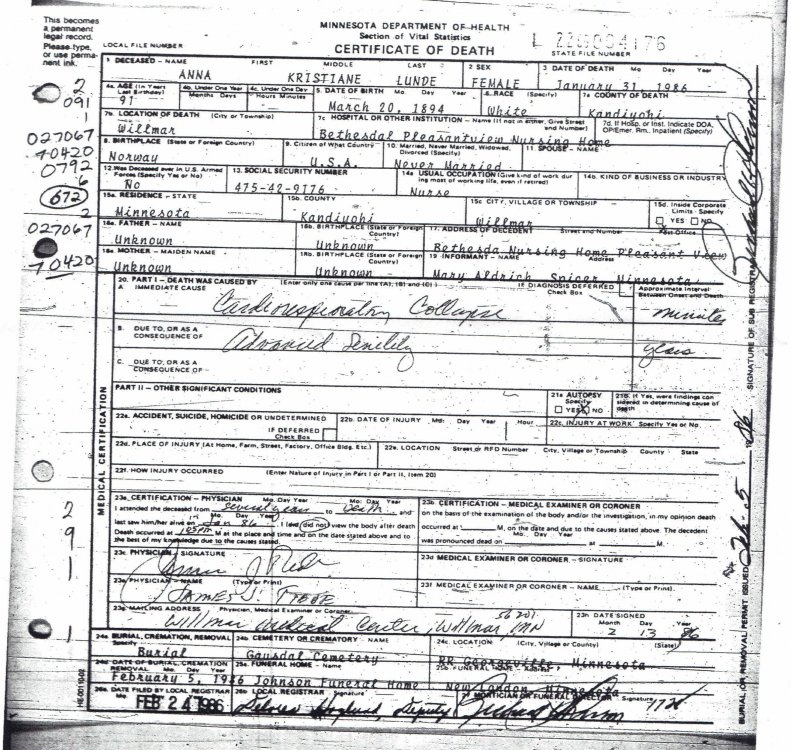 This becomes
a permanent
legal record.
Please type,
or use perma-
nent ink.
MINNESOTA DEPARTMENT OF HEALTH
Section of Vital Statistics
CERTIFICATE OF DEATH
LOCAL FILE NUMBER
STATE FILE NUMBER
1 DECEASED – NAME FIRST MIDDLE LAST 2 SEX 3 DATE OF DEATH Mo Day Year
ANNA KRISTIANE LUNDE FEMALE January 31, 1986
4a. AGE (In Years Last Birthday) 4b. Under One Year Months Days 4c. Under One Day Hours Minutes 5. DATE OF BIRTH Mo. Day Year 6. RACE (Specify) 7a COUNTY OF DEATH
91 March 20, 1894 White Kandiyohi
7b. LOCATION OF DEATH (City or Township) 7c HOSPITAL OR OTHER INSTITUTION – Name (If not in either, Give Street and Number) 7d. If Hosp. or Inst. Indicate DOA, OP/Emer. Rm., Inpatient (Specify)
Willmar Bethesdal Pleasantview Nursing Home
8. BIRTHPLACE (State or Foreign Country) 9. Citizen of What Country 10. Married, Never Married, Widowed, Divorced (Specify) 11 SPOUSE – NAME
Norway U.S.A. Never Married
12. Was Deceased ever in U.S. Armed Forces (Specify Yes or No) 13. SOCIAL SECURITY NUMBER 14a USUAL OCCUPATION (Give kind of work during most of working life, even if retired) 14b. KIND OF BUSINESS OR INDUSTRY
No 475-42-9176 Nurse
15a. RESIDENCE – STATE 15b. COUNTY 15c CITY, VILLAGE OR TOWNSHIP 15d. Inside Corporate Limits - Specify
Minnesota Kandiyohi Willmar YES NO
16a. FATHER – NAME 16b. BIRTHPLACE (State or Foreign Country) 17. ADDRESS OF DECEDENT Street and Number Post Office
Unknown Unknown Bethesda Nursing Home Pleasant View
18a. MOTHER – MAIDEN NAME 18b. BIRTHPLACE (State or Foreign Country) 19 INFORMANT – NAME Address
Unknown Unknown Mary Aldrich Spicer Minnesota
2
091
1
027067
70420
0792
6
672
2
027067
70420
MEDICAL CERTIFICATION
20. PART I – DEATH WAS CAUSED BY (Enter only one cause per line (A), (B) and (C)) IF DIAGNOSIS DEFERRED Check Box Approximate Interval Between Onset and Death
A IMMEDIATE CAUSE
Cardiorespiratory Collapse minutes
B. DUE TO, OR AS A CONSEQUENCE OF
Advanced Senility years
C. DUE TO, OR AS A CONSEQUENCE OF –
PART II – OTHER SIGNIFICANT CONDITIONS 21a AUTOPSY Specify YES NO 21b. If Yes, were findings considered in determining cause of death
22a. ACCIDENT, SUICIDE, HOMICIDE OR UNDETERMINED 22b. DATE OF INJURY Mo. Day Year Hour 22c. INJURY AT WORK Specify Yes or No
IF DEFERRED Check Box
22d. PLACE OF INJURY (At Home, Farm, Street, Factory, Office Bldg. Etc.) 22e. LOCATION Street or RFD Number City, Village or Township County State
22f. HOW INJURY OCCURRED (Enter Nature of Injury in Part I or Part II, Item 20)
23a CERTIFICATION – PHYSICIAN Mo. Day Year Mo. Day Year
I attended the deceased from several years to Death, and
last saw him/her alive on Jan 86 I (did) (did not) view the body after death
Death occurred at M at the place and time and on the date stated above and to
the best of my knowledge due to the causes stated.
23b CERTIFICATION – MEDICAL EXAMINER OR CORONER
on the basis of the examination of the body and/or the investigation, in my opinion death
occurred at M, on the date and due to the causes stated above. The decedent
Mo. Day Year
was pronounced dead on at M.
23c. PHYSICIAN – SIGNATURE 23d MEDICAL EXAMINER OR CORONER – SIGNATURE
23e PHYSICIAN – NAME (Type or Print) 23f. MEDICAL EXAMINER OR CORONER – NAME (Type or Print)
JAMES
23g MAILING ADDRESS Physician, Medical Examiner or Coroner 23h DATE SIGNED Month Day Year
Willmar Medical Center, Willmar, MN 56201 2 13 86
24a BURIAL, CREMATION, REMOVAL Specify 24b CEMETERY OR CREMATORY – NAME 24c. LOCATION (City, Village or County) (State)
Burial Gausdal Cemetery RR Georgeville, Minnesota
24d DATE OF BURIAL, CREMATION REMOVAL Mo. Day Year 25a. FUNERAL HOME – Name 25b FUNERAL HOME – Address
February 5, 1986 Johnson Funeral Home New London, Minnesota
26a. DATE FILED BY LOCAL REGISTRAR 26b LOCAL REGISTRAR Signature 27 MORTICIAN OR FUNERAL DIRECTOR Signature
FEB 24 1986 Deputy
2
9
1
1
HE-00110-02
SIGNATURE OF SUB REGISTRAR
BURIAL, OR REMOVAL PERMIT ISSUED Feb. 5 86